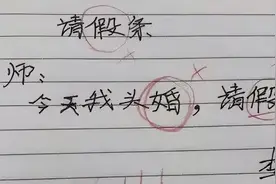 请假条
师：
今天我头婚，请假